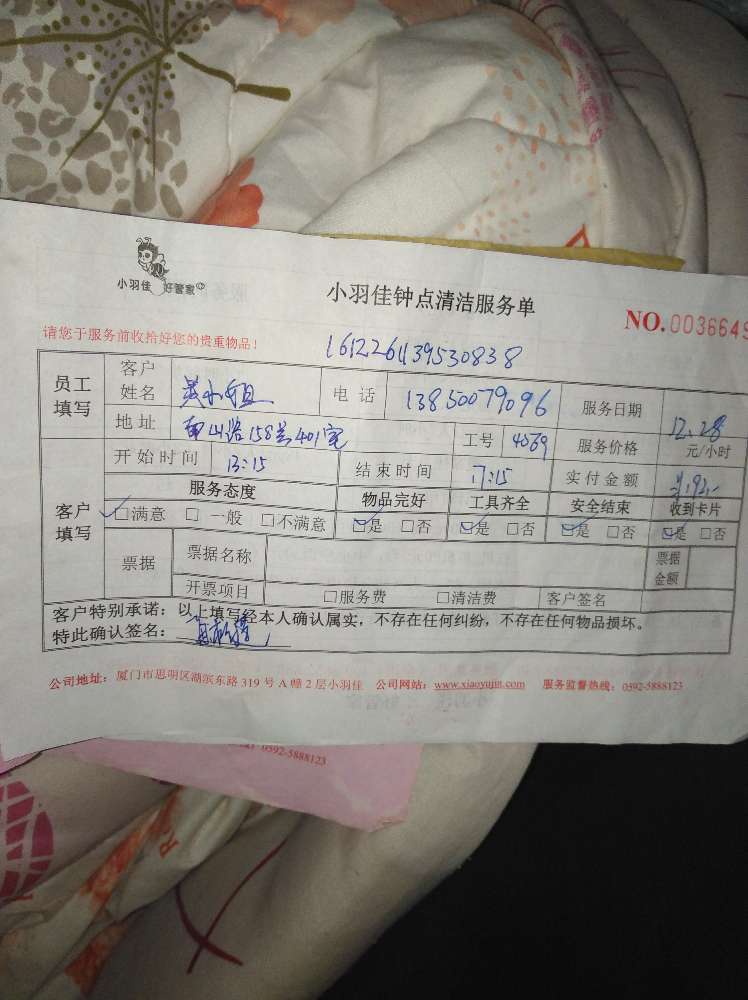 小羽佳 好管家
小羽佳钟点清洁服务单
NO.0036649
请您于服务前收拾好您的贵重物品!
1612261139530838
员工填写 客户姓名 吴小姐 电话 13850079096 服务日期 12.28
地址 山路158号401室 工号 4069 服务价格 元/小时
客户填写 开始时间 13:15 结束时间 17:15 实付金额 192.-
服务态度 物品完好 工具齐全 安全结束 收到卡片
☑满意 □一般 □不满意 ☑是 □否 ☑是 □否 ☑是 □否 ☑是 □否
票据 票据名称 票据金额
开票项目 □服务费 □清洁费 客户签名
客户特别承诺:以上填写经本人确认属实,不存在任何纠纷,不存在任何物品损坏。
特此确认签名:
公司地址:厦门市思明区湖滨东路 319 号 A 幢 2 层小羽佳 公司网站:www.xiaoyujia.com 服务监督热线:0592-5888123
0592-5888123